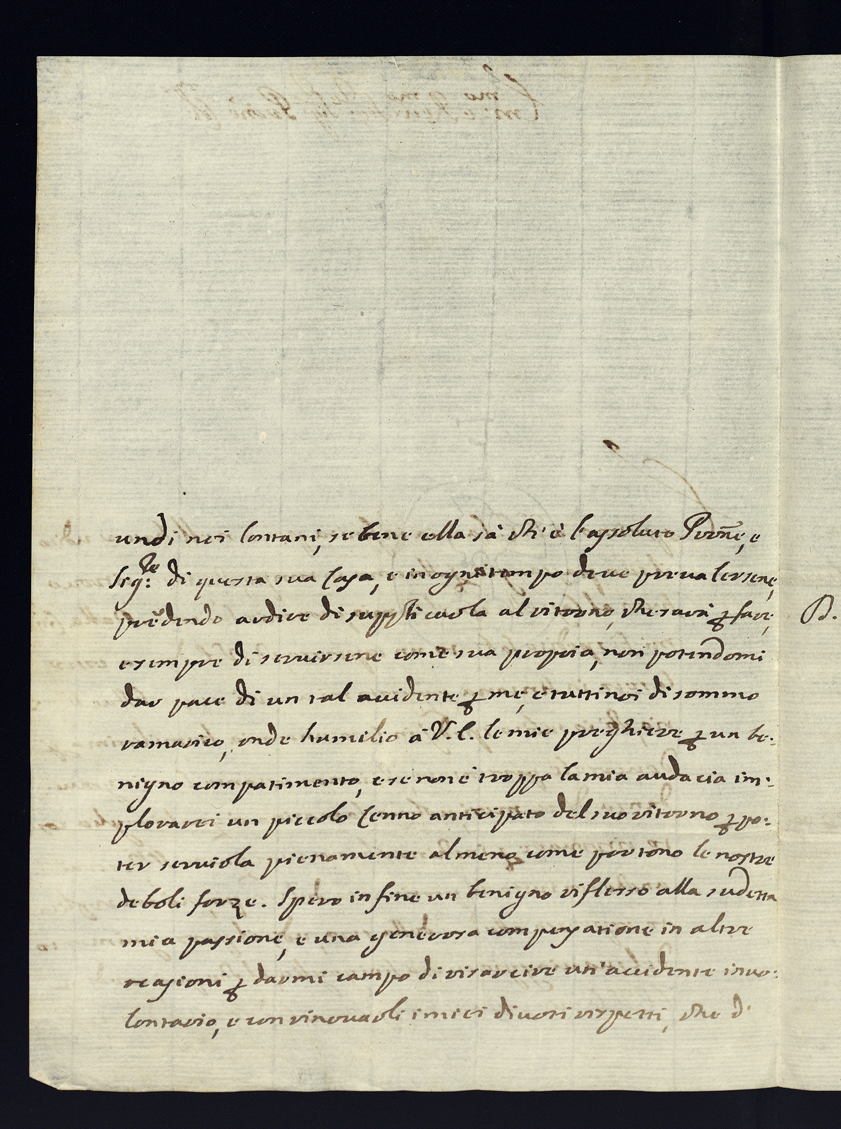 undi nei lontani, se bene ella sà ch'è l'assoluto Pröne, e
di questa sua Casa, e in ogni tempo deve prevalersene,
prëdendo ardire di supplicarla al ritorno, che sarà ꝑ fare,
e sempre di servirsene come sua propria, non potendomi
dar pace di un tal accidente ꝑ me, e tutti noi di sommo
ramarico, onde humilio à V.E. le mie preghiere ꝑ un be:
nigno compatimento, e se non è troppa la mia audacia im:
plorarei un piccolo Cenno anticipato del suo ritorno ꝑ po:
ter servirla pienamente almeno, come portono le nostre
deboli forze. Spero in fine un benigno riflesso alla sudetta
mia passione, e una generosa compensatione in altre
ocasioni ꝑ darmi campo di risarcire un'accidente invo:
lontario, e con rinovarli i miei divoti rispetti, che d'
B.